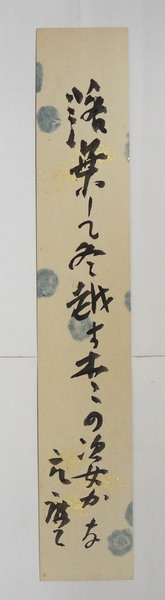 落葉して冬越す木々の次女かな